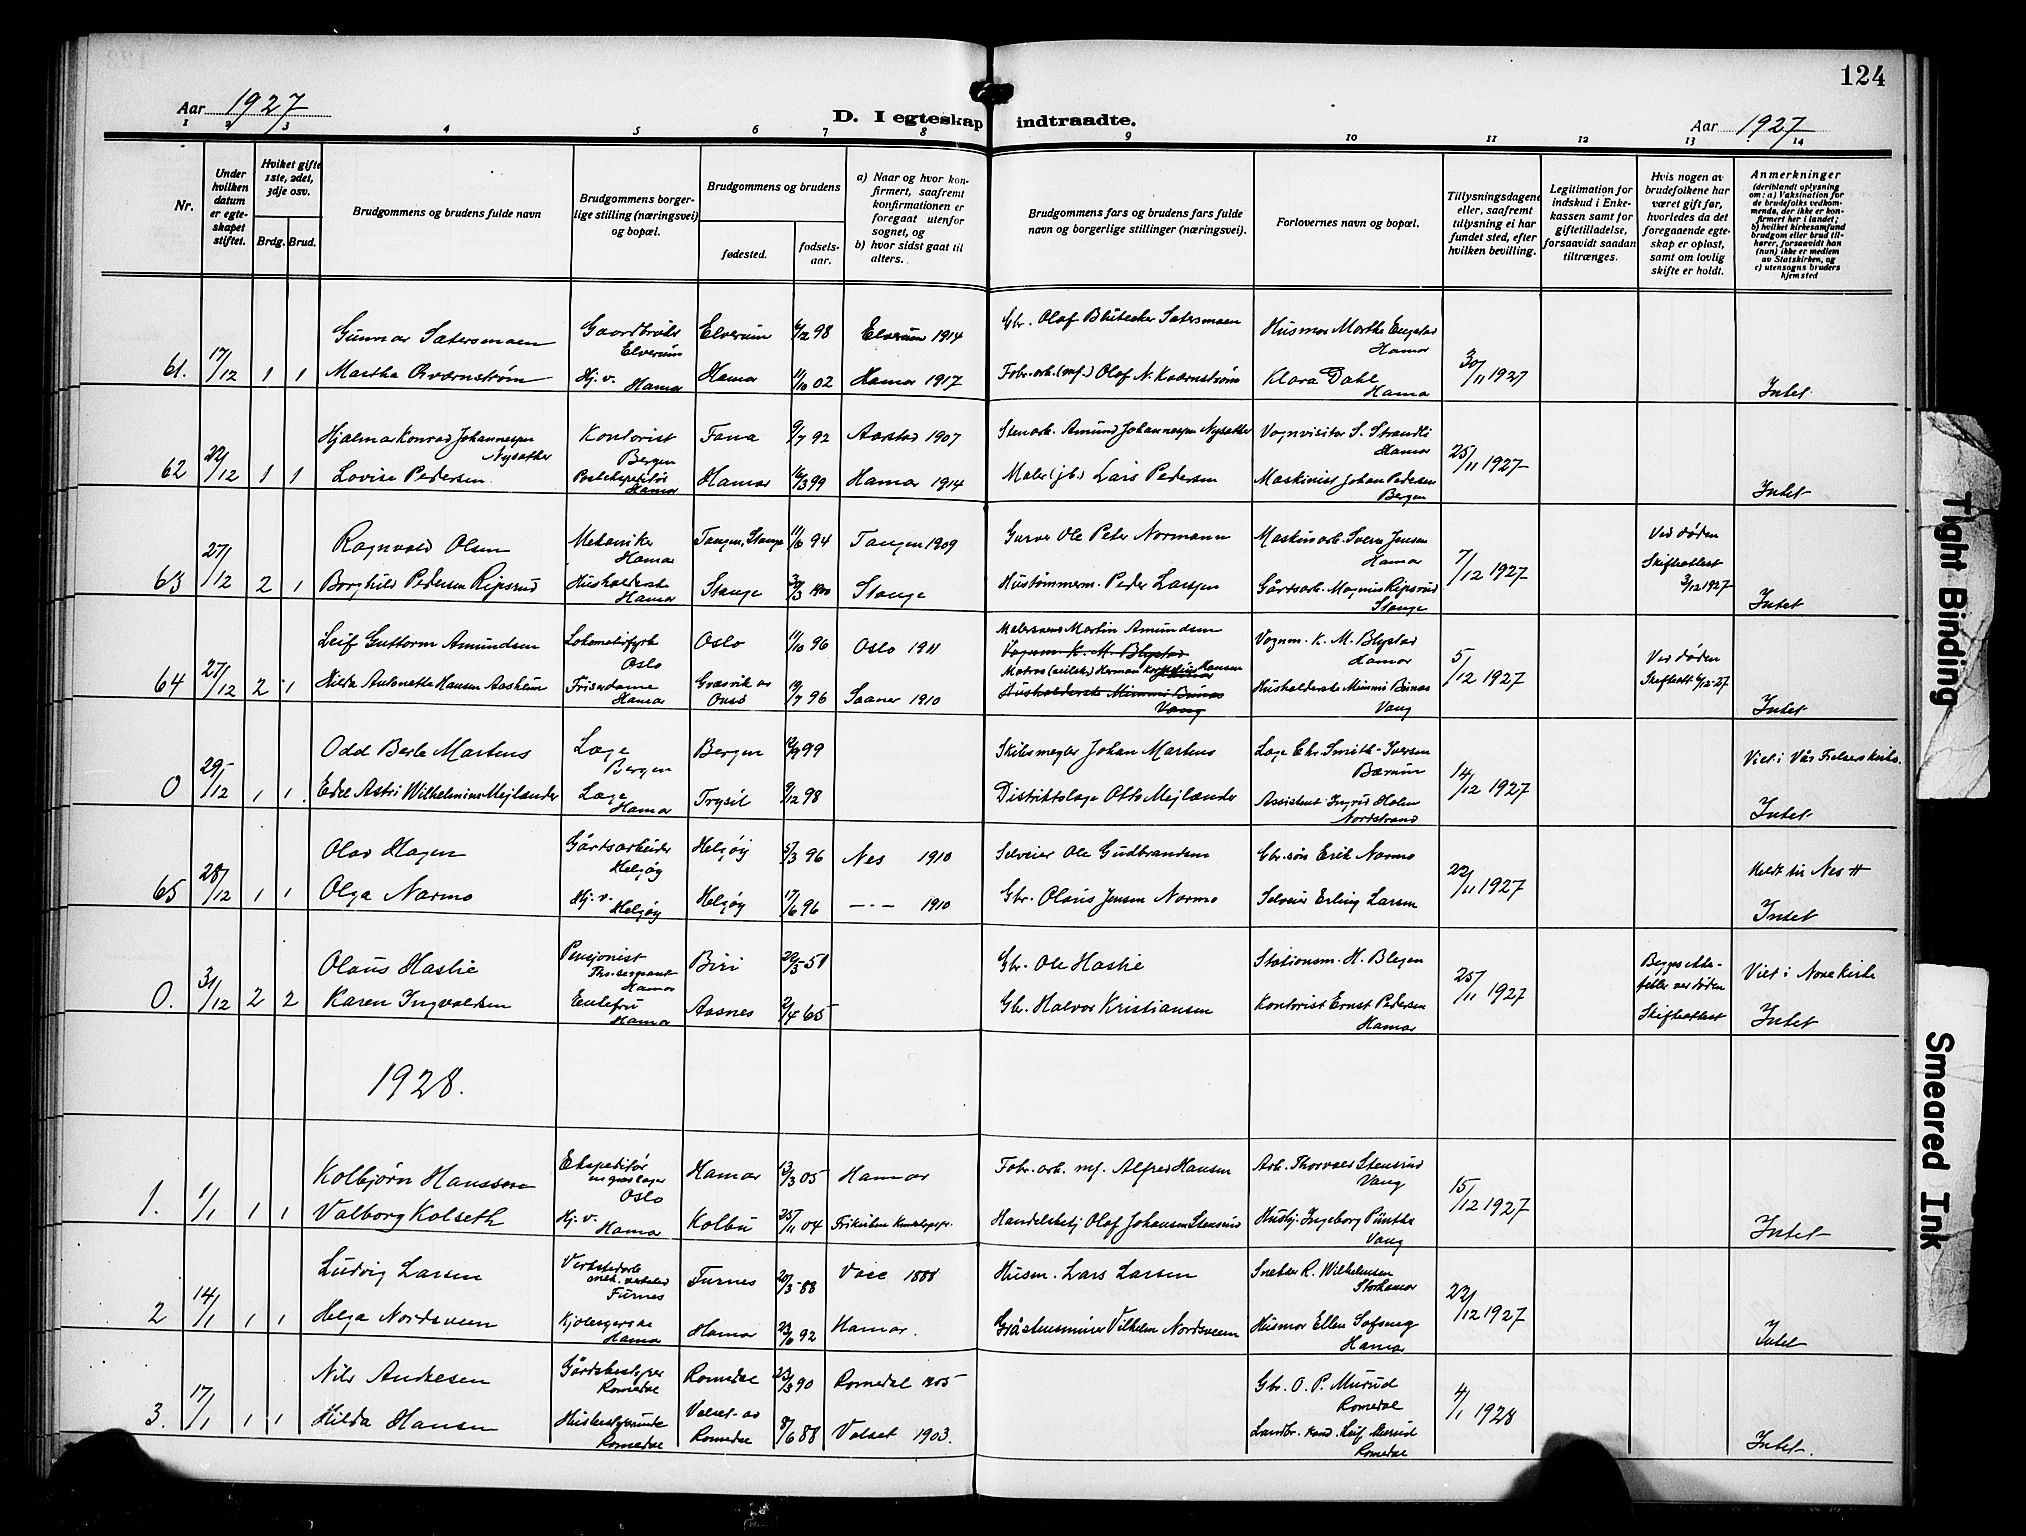 124
Aar 1927
D. I egteskap indtraadte.
Aar 1927
1 2 3 4 5 6 7 8 9 10 11 12 13 14
Nr.
Under hvilken datum er egteskapet stiftet.
Hvilket gifte 1ste, 2det, 3dje osv.
Brdg. Brud.
Brudgommens og brudens fulde navn
Brudgommens borgerlige stilling (næringsvei) og bopæl.
Brudgommens og brudens
fødested.
fødselsaar.
a) Naar og hvor konfirmert, saafremt konfirmationen er foregaat utenfor sognet, og
b) hvor sidst gaat til alters.
Brudgommens fars og brudens fars fulde navn og borgerlige stillinger (næringsvei).
Forlovernes navn og bopæl.
Tillysningsdagene eller, saafremt tillysning ei har fundet sted, efter hvilken bevilling.
Legitimation for indskud i Enkekassen samt for giftetilladelse, forsaavidt saadan tiltrænges.
Hvis nogen av brudefolkene har været gift før, hvorledes da det foregaaende egteskap er opløst, samt om lovlig skifte er holdt.
Anmerkninger
(deriblandt oplysning om: a) Vaksination for de brudefolks vedkommende, der ikke er konfirmert her i landet; b) hvilket kirkesamfund brudgom eller brud tilhører, forsaavidt han (hun) ikke er medlem av Statskirken, og c) utensogns bruders hjemsted
Gunnar Sætersmoen Gaardbruker Elverum Elverum 6/12 98 Elverum 1914 Gbr. Olaf Sætersmoen Husmor Marthe Engstad Hamar
61. 17/12 1 1 Martha Kværnstrøm Hj. v. Hamar Hamar 11/10 02 Hamar 1917 Fabr. arb. (mf.) Olaf N. Kværnstrøm Klara Dahl Hamar 30/11 1927 Intet.
Hjalmar Konrad Johannessen Nysæther Kontorist Bergen Fana 9/7 92 Aarstad 1907 Stenarb. Amund Johannessen Nysæther Vognvisitør S. Strandli Hamar
62 22/12 1 1 Lovise Pedersen. Postekspeditør Hamar Hamar 16/3 99 Hamar 1914 Maler (jb.) Lars Pedersen Maskinist Johan Pedersen Bergen 25/11 1927 Intet
Ragnvald Olsen Mekaniker Hamar Tangen, Stange 11/6 94 Tangen 1909 Garver Ole Peter Normann Maskinarb. Sverre Jensen Hamar Ved døden
63 27/12 2 1 Borghild Pedersen Ripsrud Husholderske Hamar Stange 30/3 1900 Stange Hustømmerm. Peder Larsen Gårdsarb. Magnus Ripsrud Stange 7/12 1927 Skifteattest 3/12 1927 Intet
Leif Guttorm Amundsen Lokomotivfyrb. Oslo Oslo 11/10 96 Oslo 1911 Malersvend Martin Amundsen Vognm. K. M. Blystad Hamar Ved døden
Vognm. K. M. Blystad
64 27/12 2 1 Hilda Antonette Hansen Aasheim Frisørdame Hamar Græsvik av Onsø 19/7 96 Saaner 1910 Matros (seilsk.) Herman Hansen Husholderske Mimmi Brinas Vang 5/12 1927 Skifteatt 6/12-27 Intet
Husholderske Mimmi Brinas Vang
Odd Berle Martens Læge Bergen Bergen 12/9 99 Skibsmegler Johan Martens Læge Chr. Smith-Iversen Bærum Viet i Vår Frelsers kirke.
0 29/12 1 1 Edel Astri Wilhelmine Mejlænder Læge Hamar Trysil 9/12 98 Distriktslæge Otto Mejlænder Assistent Ingrid Holen Nordstrand 14/12 1927 Intet
Olav Hagen Gårdsarbeider Helgøy Helgøy 5/3 96 Nes 1910 Selveier Ole Gudbrandsen Gbr. søn Erik Narmo Meldt til Nes H
65 28/12 1 1 Olga Narmo Hj. v. Helgøy Helgøy 17/6 96 —"— 1910 Gbr. Olaus Jensen Narmo Selveier Erling Larsen 22/11 1927 Intet
Olaus Haslie Pensjonist Hamar Biri 22/5 51 Gbr. Ole Haslie Stationsm. H. Blegen Begges ektefeller ved døden Viet i Nore kirke
0. 31/12 2 2 Karen Ingvaldsen Enkefru Hamar Aasnes 2/4 65 Gbr. Halvor Kristiansen Kontorist Ernst Pedersen Hamar 25/11 1927 Skifteattest Intet
1928.
Kolbjørn Hanssen Ekspeditør engroslager Oslo Hamar 13/3 05 Hamar Fabr. arb. mf. Alfred Hansen Arb. Thorvald Stensrud Vang
1. 1/1 1 1 Valborg Kolseth Hj. v. Hamar Kolbu 25/11 04 Handelsbetj. Olaf Johansen Stensrud Hushj. Ingeborg Vang 15/12 1927 Intet
Ludvig Larsen Verkstedarb. mek. verksted Furnes Furnes 20/3 88 Husm. Lars Larsen Snekker R. Wilhelmsen Storhamar
2 14/1 1 1 Helga Nordsveen Kjolesyerske Hamar Hamar 23/6 92 Hamar. Gråstensmurer Vilhelm Nordsveen Husmor Ellen Hamar 22/12 1927 Intet
Nils Andresen Gårdsbestyrer Romedal Romedal 23/3 90 Romedal 1905 Gbr. O. P. Murud Romedal
3. 17/1 1 1 Hilda Hansen Husbestyrerinde Romedal Valset av Romedal 8/6 88 Valset 1903. Landbr. kand. Leif Murud Romedal 4/1 1928 Intet.
Tight Binding
Smeared Ink